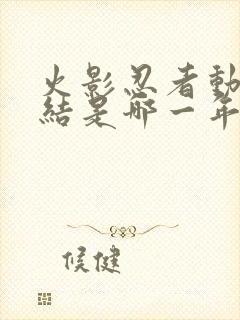 火影忍者動
結是哪一年
候健